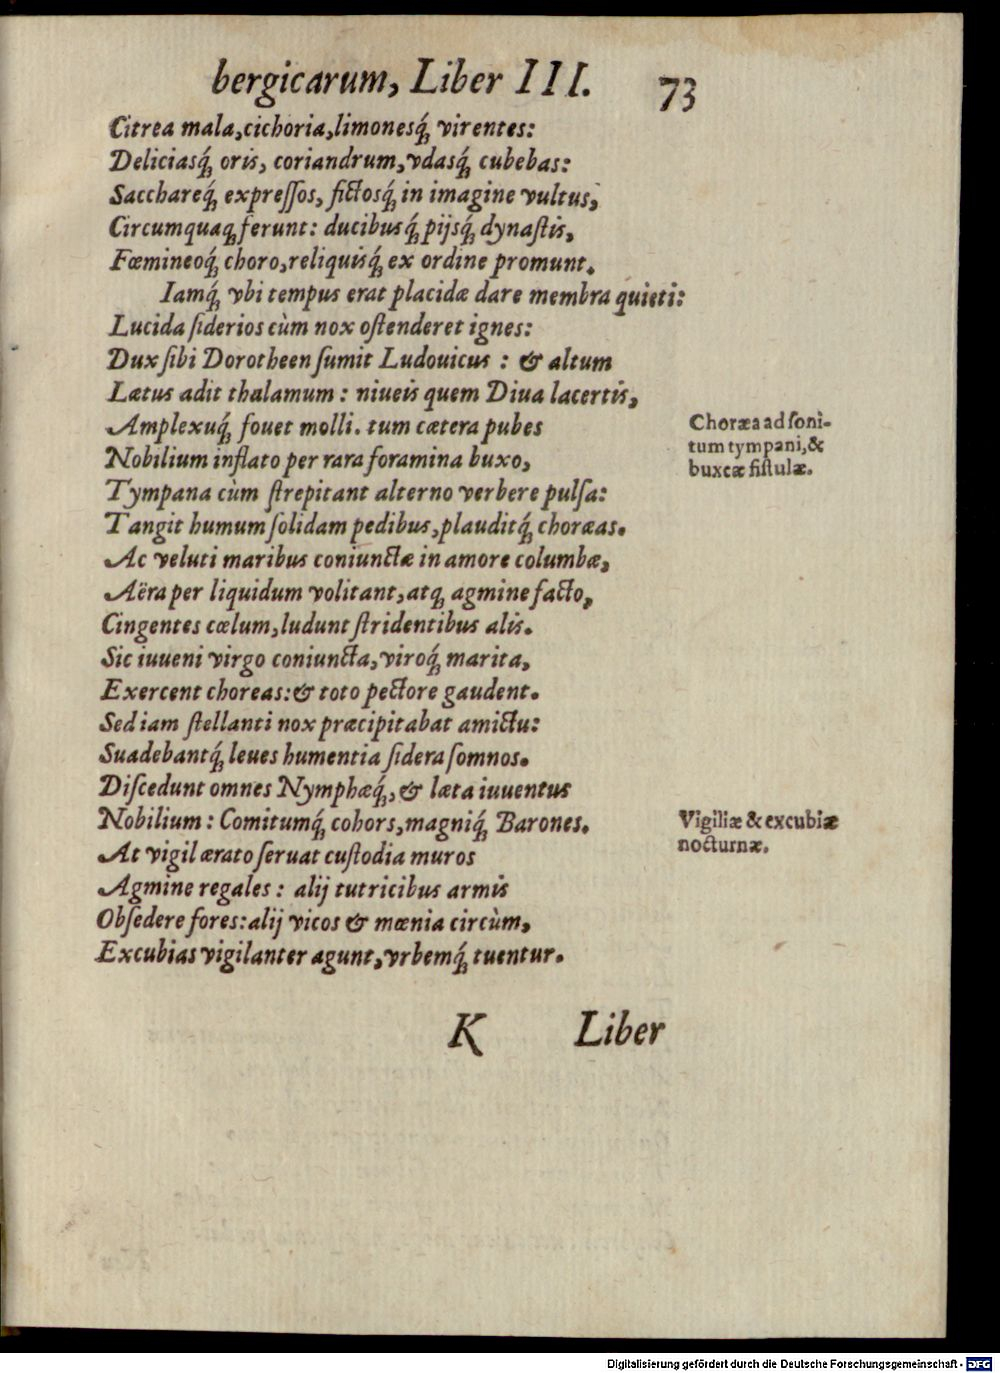 bergicarum, Liber III. 73
Citrea mala, cichoria, limonesq́; virentes:
Deliciasq́; oris, coriandrum, vdasq́; cubebas:
Acchareq́; expreſſos, fictosq́; in imagine vultus,
Circumquaq; ferunt: ducibusq́; pijsq́; dynaſtis,
Fœmineoq́; choro, reliquisq́; ex ordine promunt.
Iamq́; vbi tempus erat placidæ dare membra quieti:
Lucida ſiderios cùm nox oſtenderet ignes:
Dux ſibi Dorotheen ſumit Ludouicus : & altum
Lætus adit thalamum : niueis quem Diua lacertis,
Amplexuq́; fouet molli. tum cætera pubes
Choræa ad ſoni-
tum tympani, &
buxeæ fiſtulæ.
Nobilium inflato per rara foramina buxo,
Tympana cùm ſtrepitant alterno verbere pulſa:
Tangit humum ſolidam pedibus, plauditq́; choræas.
Ac veluti maribus coniunctæ in amore columbæ,
Aëra per liquidum volitant, atq; agmine facto,
Cingentes cœlum, ludunt ſtridentibus alis.
Sic iuueni virgo coniuncta, viroq́; marita,
Exercent choreas: & toto pectore gaudent.
Sed iam ſtellanti nox præcipitabat amictu:
Suadebantq́; leues humentia ſidera ſomnos.
Diſcedunt omnes Nymphæq́;, & læta iuuentus
Nobilium : Comitumq́; cohors, magniq́; Barones.
Vigiliæ & excubiæ
nocturnæ.
At vigil ærato ſeruat cuſtodia muros
Agmine regales : alij tutricibus armis
Obſedere fores: alij vicos & mœnia circùm,
Excubias vigilanter agunt, vrbemq́; tuentur.
K Liber
Digitalisierung gefördert durch die Deutsche Forschungsgemeinschaft - DFG